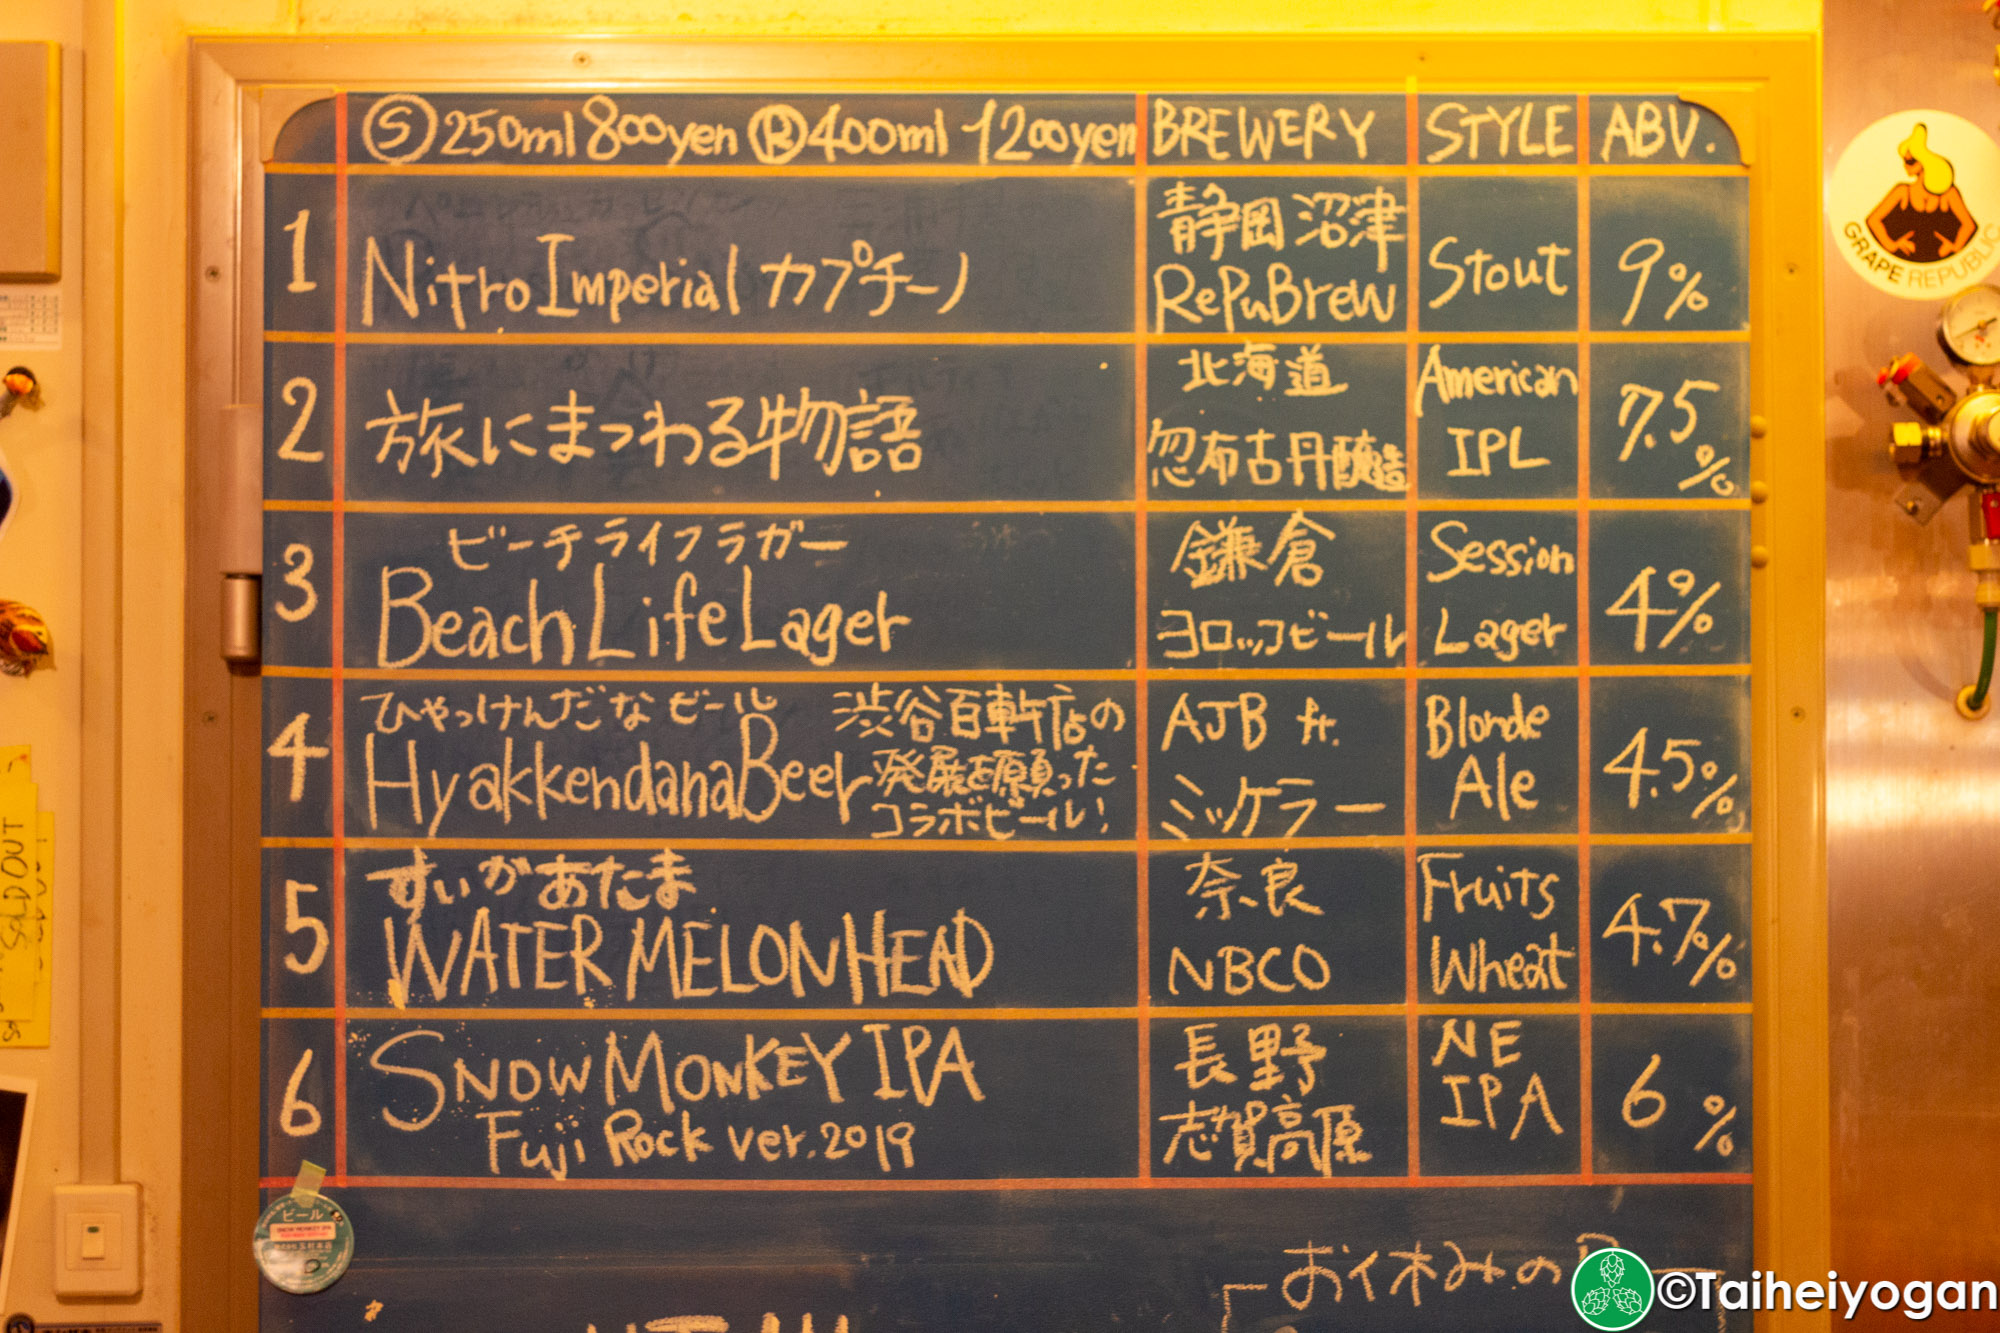 Ⓢ250ml 800yen Ⓡ400ml 1200yen BREWERY STYLE ABV.
1 Nitro Imperial カプチーノ 静岡 沼津 RePuBrew Stout 9%
2 旅にまつわる物語 北海道 忽布古丹醸造 American IPL 7.5%
3 ビーチライフラガー
Beach Life Lager 鎌倉 ヨロッコビール Session Lager 4%
4 ひゃっけんだなビール
HyakkendanaBeer 渋谷百軒店の
発展を願った
コラボビール! AJB ft. ミッケラー Blonde Ale 4.5%
5 すいがあたま
WATERMELON HEAD 奈良 NBCO Fruits Wheat 4.7%
6 SNOW MONKEY IPA
Fuji Rock ver. 2019 長野 志賀高原 NE IPA 6%
ビール
SNOW MONKEY IPA
おイ木みの
GRAPE REPUBLIC
SOLD OUT
©Taiheiyogan